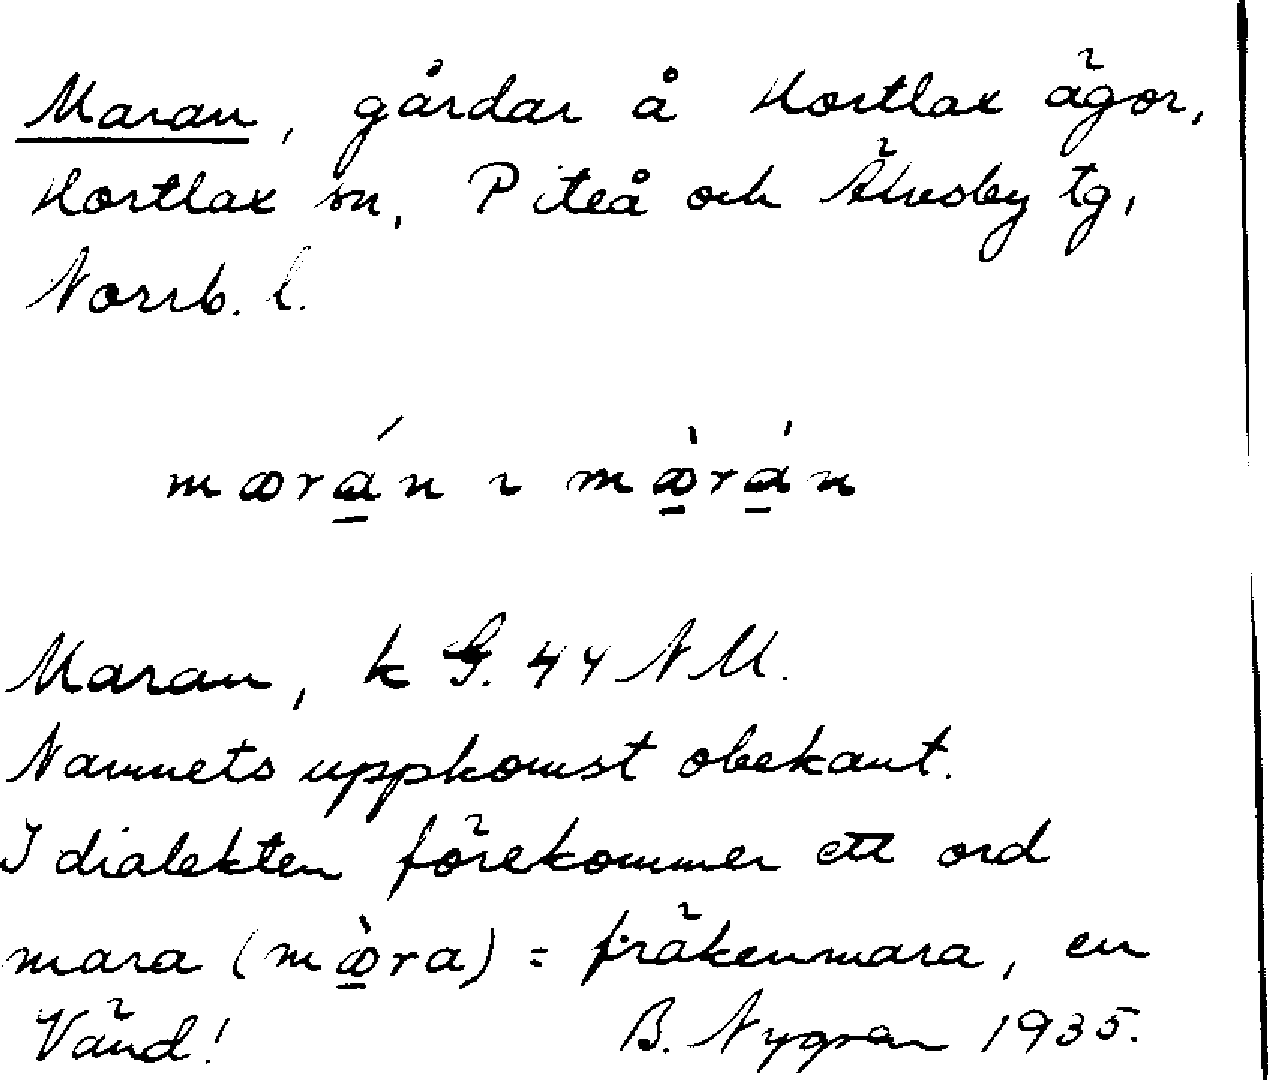 Maran, gårdar å Hortlax ägor,
Hortlax sn, Piteå och Älvsby tg,
Norrb. l.
mɷrá̠n ~ mɷ̠̀rá̠n
Maran, k G. 44 NM.
Namnets uppkomst obekant.
I dialekten förekommer ett ord
mara (mɷ̠̀ra) = fräkenmara, en
Vänd! B. Nygren 1935.